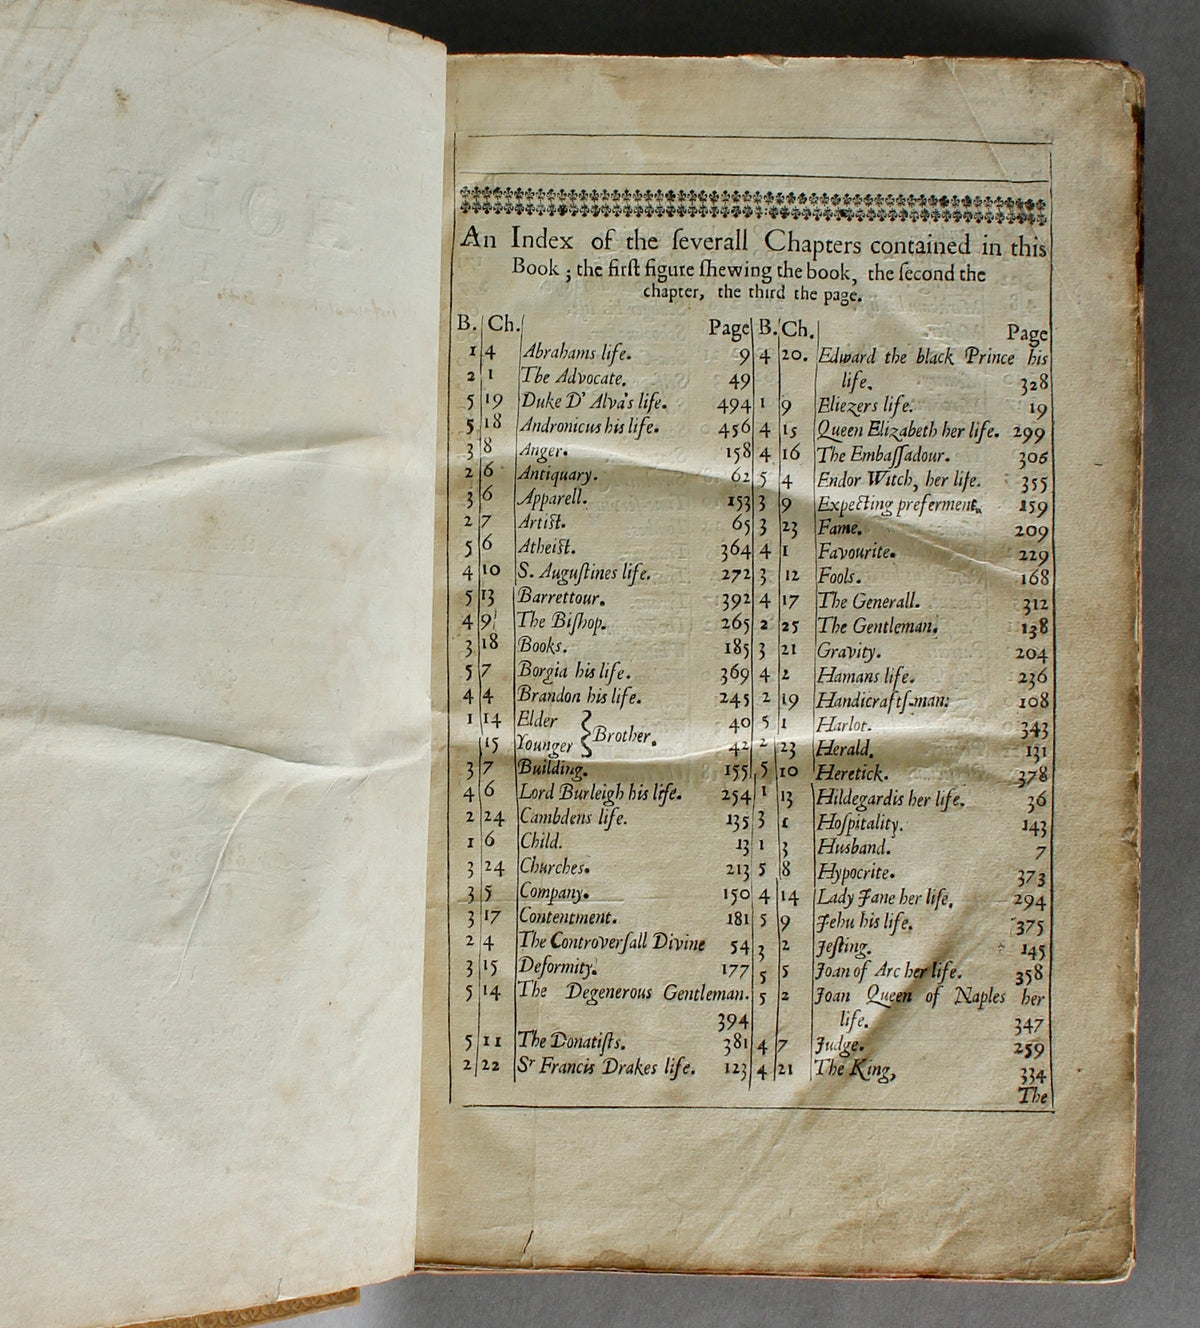 An Index of the ſeverall Chapters contained in this
Book; the firſt figure ſhewing the book, the second the
chapter, the third the page.
B. Ch. Page
1 4 Abrahams life. 9
2 1 The Advocate. 49
5 19 Duke D' Alva's life. 494
5 18 Andronicus his life. 456
3 8 Anger. 158
2 6 Antiquary. 62
3 6 Apparell. 153
2 7 Artiſt. 65
5 6 Atheiſt. 364
4 10 S. Auguſtines life. 272
5 13 Barrettour. 392
4 9 The Biſhop. 265
3 18 Books. 185
5 7 Borgia his life. 369
4 4 Brandon his life. 245
1 14 Elder } Brother. 40
15 Younger 42
3 7 Building. 155
4 6 Lord Burleigh his life. 254
2 24 Cambdens life. 135
1 6 Child. 13
3 24 Churches. 213
3 5 Company. 150
3 17 Contentment. 181
2 4 The Controverſall Divine 54
3 15 Deformity. 177
5 14 The Degenerous Gentleman.
394
5 11 The Donatiſts. 381
2 22 Sr Francis Drakes life. 123
B. Ch. Page
4 20. Edward the black Prince his
life. 328
1 9 Eliezers life. 19
4 15 Queen Elizabeth her life. 299
4 16 The Embaſſadour. 306
5 4 Endor Witch, her life. 355
3 9 Expecting preferment. 159
3 23 Fame. 209
4 1 Favourite. 229
3 12 Fools. 168
4 17 The Generall. 312
2 25 The Gentleman. 138
3 21 Gravity. 204
4 2 Hamans life. 236
2 19 Handicraftſ-man: 108
5 1 Harlot. 343
2 23 Herald. 131
5 10 Heretick. 378
1 13 Hildegardis her life. 36
3 1 Hoſpitality. 143
1 3 Husband. 7
5 8 Hypocrite. 373
4 14 Lady Jane her life. 294
5 9 Jehu his life. 375
3 2 Jeſting. 145
5 5 Joan of Arc her life. 358
5 2 Joan Queen of Naples her
life. 347
4 7 Judge. 259
4 21 The King, 334
The